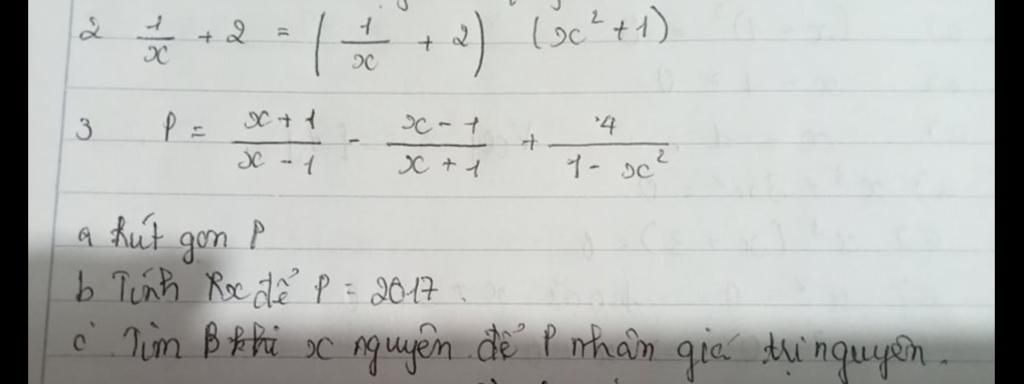 2 1/x + 2 = (1/x + 2) (x² + 1)
3 P = (x + 1)/(x - 1) - (x - 1)/(x + 1) + 4/(1 - x²)
a Rút gọn P
b Tính x để P = 2017.
c Tìm x nguyên để P nhân giá trị nguyên.